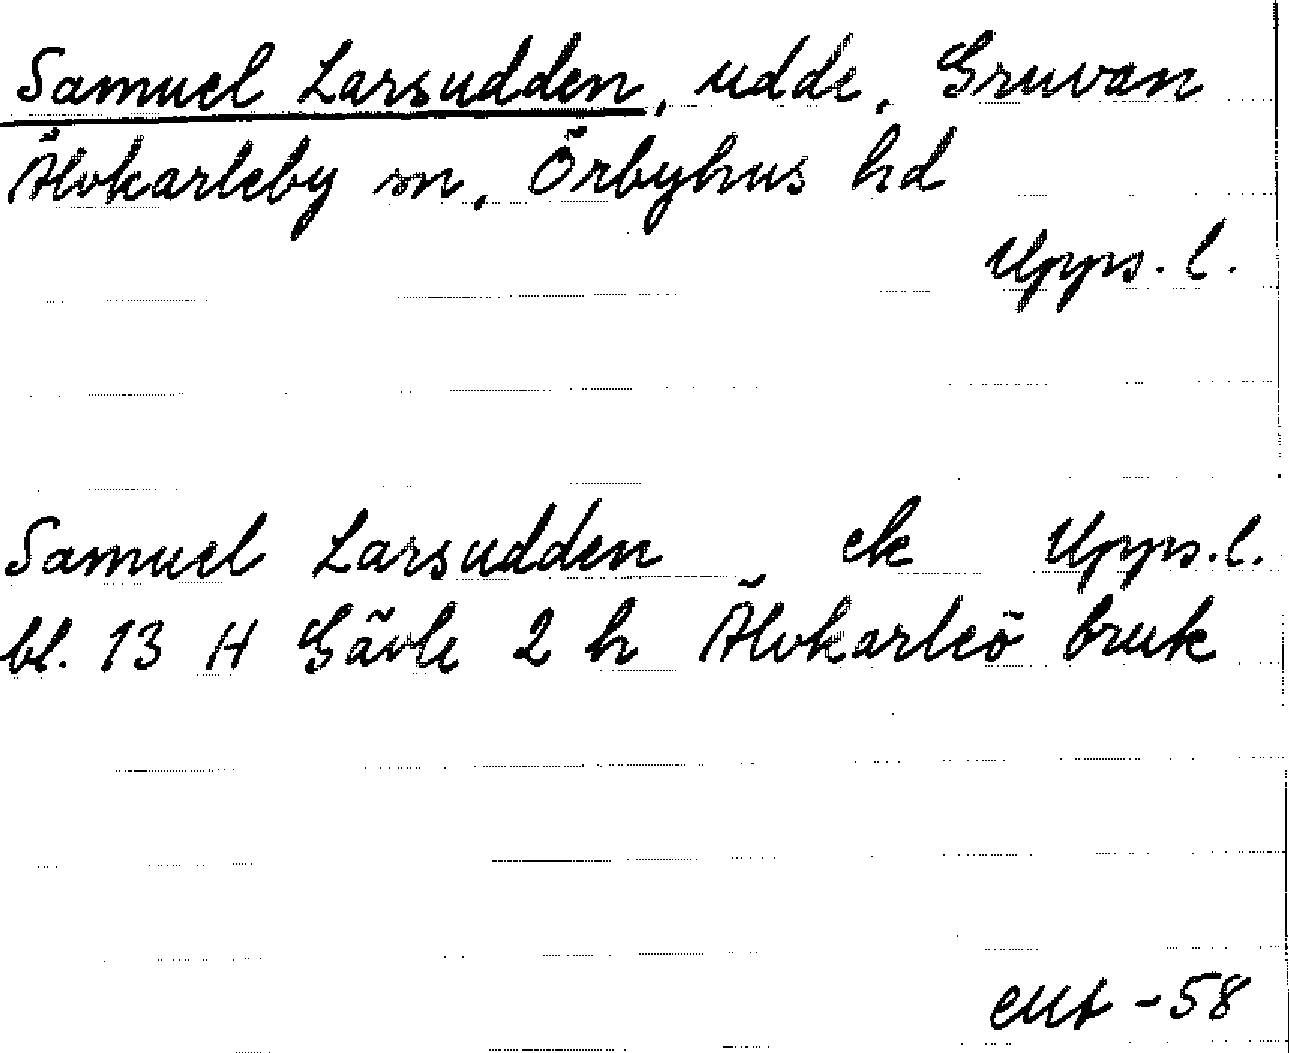 Samuel Larsudden, udde, Gruvan
Älvkarleby sn, Örbyhus hd
Upps. l.
Samuel Larsudden ek Upps. l.
bl. 13 H Gävle 2 h Älvkarleö bruk
-58